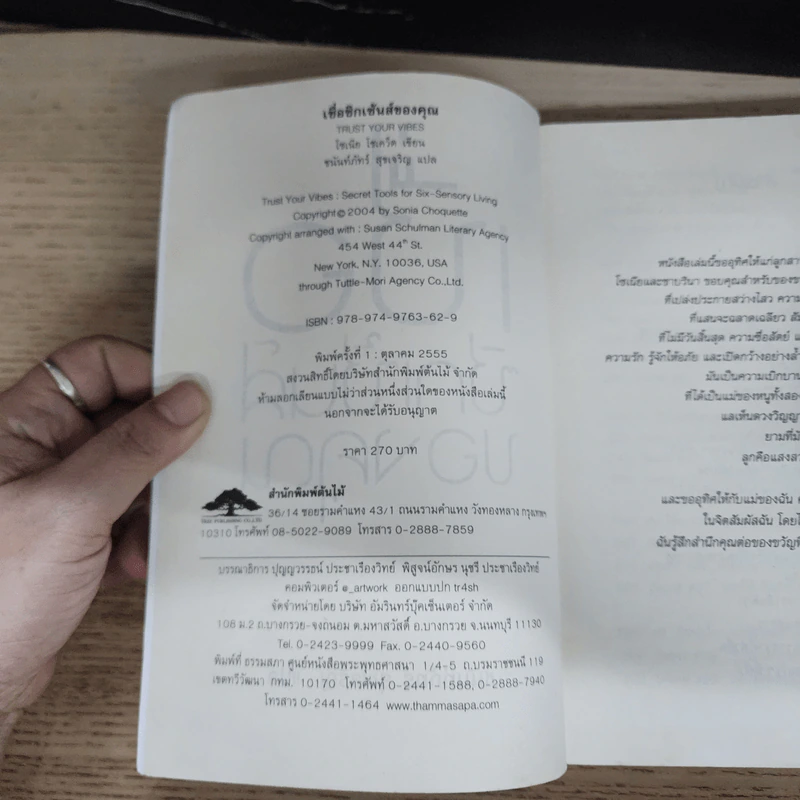 เชื่อซิกเซ้นส์ของคุณ
TRUST YOUR VIBES
โซเนีย โชเคว็ต เขียน
ชนันท์ภัทร์ สุขเจริญ แปล
Trust Your Vibes : Secret Tools for Six-Sensory Living
Copyright © 2004 by Sonia Choquette
Copyright arranged with : Susan Schulman Literary Agency
454 West 44th St.
New York, N.Y. 10036, USA
through Tuttle-Mori Agency Co.,Ltd.
ISBN : 978-974-9763-62-9
พิมพ์ครั้งที่ 1 : ตุลาคม 2555
สงวนสิทธิ์โดยบริษัทสำนักพิมพ์ต้นไม้ จำกัด
ห้ามลอกเลียนแบบไม่ว่าส่วนหนึ่งส่วนใดของหนังสือเล่มนี้
นอกจากจะได้รับอนุญาต
ราคา 270 บาท
สำนักพิมพ์ต้นไม้
36/14 ซอยรามคำแหง 43/1 ถนนรามคำแหง วังทองหลาง กรุงเทพฯ
10310 โทรศัพท์ 08-5022-9089 โทรสาร 0-2888-7859
บรรณาธิการ ปุญญวรรธน์ ประชาเรืองวิทย์ พิสูจน์อักษร นุชรี ประชาเรืองวิทย์
คอมพิวเตอร์ e_artwork ออกแบบปก tr4sh
จัดจำหน่ายโดย บริษัท อัมรินทร์บุ๊คเซ็นเตอร์ จำกัด
108 ม.2 ถ.บางกรวย-จงถนอม ต.มหาสวัสดิ์ อ.บางกรวย จ.นนทบุรี 11130
Tel. 0-2423-9999 Fax. 0-2440-9560
พิมพ์ที่ ธรรมสภา ศูนย์หนังสือพระพุทธศาสนา 1/4-5 ถ.บรมราชชนนี 119
เขตทวีวัฒนา กทม. 10170 โทรศัพท์ 0-2441-1588, 0-2888-7940
โทรสาร 0-2441-1464 www.thammasapa.com
หนังสือเล่มนี้ขออุทิศให้แก่ลูกสา
โซเนียและซาบรินา ขอบคุณสำหรับของข
ที่เปล่งประกายสว่างไสว ความ
ที่แสนจะฉลาดเฉลียว สั
ที่ไม่มีวันสิ้นสุด ความซื่อสัตย์ แ
ความรัก รู้จักให้อภัย และเปิดกว้างอย่างล้
มันเป็นความเบิกบาน
ที่ได้เป็นแม่ของหนูทั้งสอง
แลเห็นดวงวิญญ
ยามที่มั
ลูกคือแสงสว
และขออุทิศให้กับแม่ของฉัน
ในจิตสัมผัสฉัน โดยไ
ฉันรู้สึกสำนึกคุณต่อของขวัญที